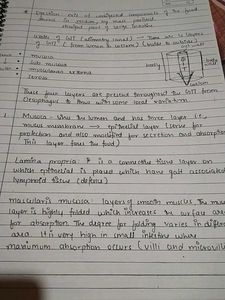 Egestion call of unexpected components of the food
through in section by their position
straight part of large section
Walls of GIT (alimentary canal) → There are 4 layers
of GIT (from lumen to serosa) (inside to outside)
mucosa
Sub mucosa
muscularis externa
serosa
These four layers are present throughout the GIT from
Oesophagus to Anus with some local variation
1 Mucosa - line the lumen and has three layer i.e.
mucus membrane → epithelial layer (serve for
protection and also modified for secretion and absorption)
This layer faces the food
Lamina propria: It is a connective tissue layer on
which epithelial is placed which have gut associated
lymphoid tissue (defense)
muscularis mucosa: layers of smooth muscles. The mucosa
layer is highly folded which increases the surface area
for absorption. The degree for folding varies in different
area. It is very high in small intestine where
maximum absorption occurs (villi and microvilli)